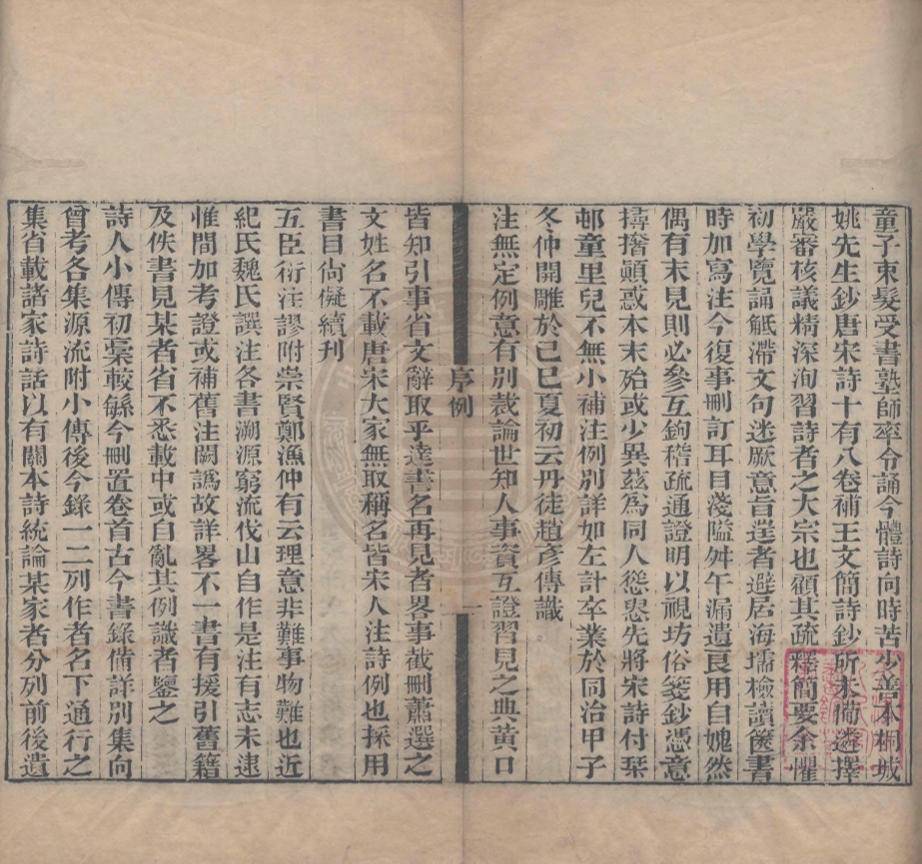 童子束髮受書塾師率令誦今體詩向時苦少善本桐城
姚先生鈔唐宋詩十有八卷補王文簡詩鈔所未備遴擇
嚴審核議精深洵習詩者之大宗也顧其疏釋簡要余懼
初學覽誦觝滯文句迷厥意旨遅者避居海壖檢讀篋書
時加寫注今復事刪訂耳目淺隘舛午漏遺良用自媿然
偶有未見則必參互鉤稽疏通證明以視坊俗箋鈔憑意
撏撦顛惑本末殆或少異茲為同人慫恿先將宋詩付棻
邨童里兒不無小補注例別詳如左計卒業於同治甲子
冬仲開雕於己巳夏初云丹徒趙彥傳識
注無定例意有別裁論世知人事資互證習見之典黃口
序例
一
皆知引事省文辭取乎達書名再見者畧事截刪蕭選之
文姓名不載唐宋大家無取稱名皆宋人注詩例也採用
書目尙儗續刋
五臣衍注謬附崇賢鄭漁仲有云理意非難事物難也近
紀氏魏氏譔注各書溯源窮流伐山自作是注有志未逮
惟間加考證或補舊注闕譌故詳畧不一書有援引舊籍
及佚書見某者省不悉載中或自亂其例識者鑒之
詩人小傳初稾較緐今刪置卷首古今書錄備詳別集向
曾考各集源流附小傳後今錄一二列作者名下通行之
集省載諸家詩話以有關本詩統論某家者分列前後遺